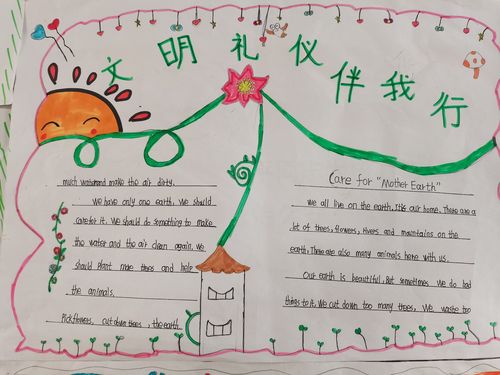 文明礼仪伴我行
much waterand make the air dirty.
We have only one earth. We should
care for it. We should do something to make
the water and the air clean again. We
should plant more trees and help
the animals.
Pickflowers, cutdown trees, the earth
Care for "Mother Earth"
We all live on the earth. It's our home. There are a
lot of trees, flowers, rivers and mountains on the
earth. There are also many animals here with us.
Out earth is beautiful. But sometimes we do bad
things to it. We cut down too many trees, We waste too